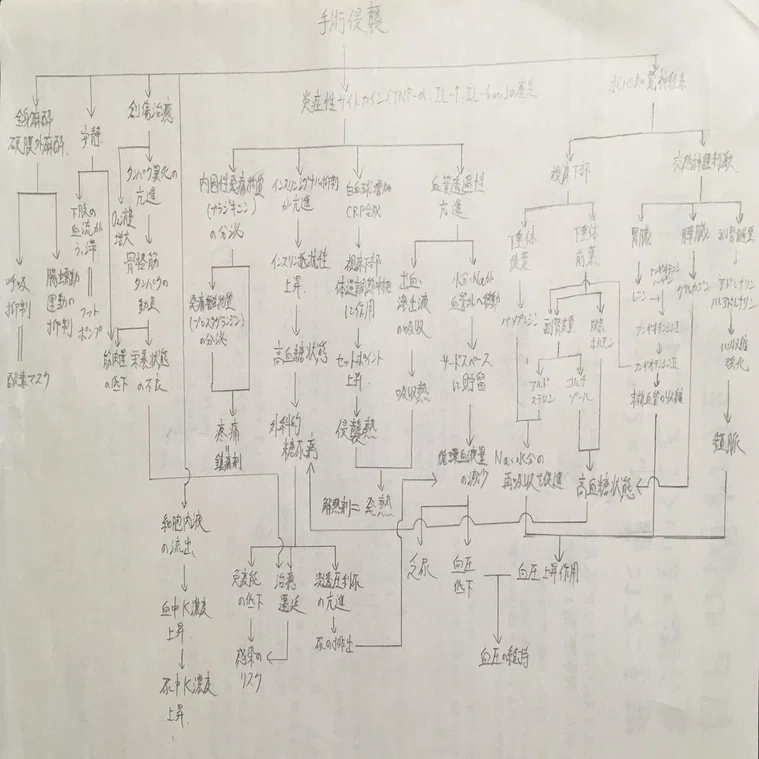 手術侵襲
全身麻酔
硬膜外麻酔
呼吸
抑制
酸素マスク
腸蠕動
運動の
抑制
安静
下肢の
血流が
うっ滞
フット
ポンプ
創傷治癒
タンパク異化の
亢進
骨格筋
タンパクの
動員
O₂消費
増大
筋肉量
の低下
栄養状態
の不良
細胞内液
の流出
血中K濃度
上昇
尿中K濃度
上昇
炎症性サイトカイン(TNF-α, IL-1, IL-6 etc)の産生
内因性発痛物質
(ブラジキニン)
の分泌
発痛増強物質
(プロスタグランジン)
の分泌
疼痛
鎮痛剤
インスリンシグナル抑制
が亢進
インスリン抵抗性
上昇
高血糖状態
外科的
糖尿病
免疫能
の低下
感染の
リスク
治癒
遅延
浸透圧利尿
の亢進
尿の排出
白血球増加
CRP合成
視床下部
体温調節中枢
に作用
セットポイント
上昇
侵襲熱
解熱剤=発熱
血管透過性
亢進
出血・
滲出液
の吸収
吸収熱
水分・Naが
血管外へ移動
サードスペース
に貯留
循環血液量
の減少
乏尿
血圧
低下
血圧の維持
視床下部
下垂体
後葉
バソプレシン
下垂体
前葉
副腎皮質
アルド
ステロン
コルチ
ゾール
成長
ホルモン
Na・水分の
再吸収を促進
高血糖状態
血圧上昇作用
交感神経刺激
腎臓
レニン
アンギオテンシンⅠ
アンギオテンシンⅡ
末梢血管の収縮
膵臓
グルカゴン
副腎髄質
アドレナリン
ノルアドレナリン
頻脈